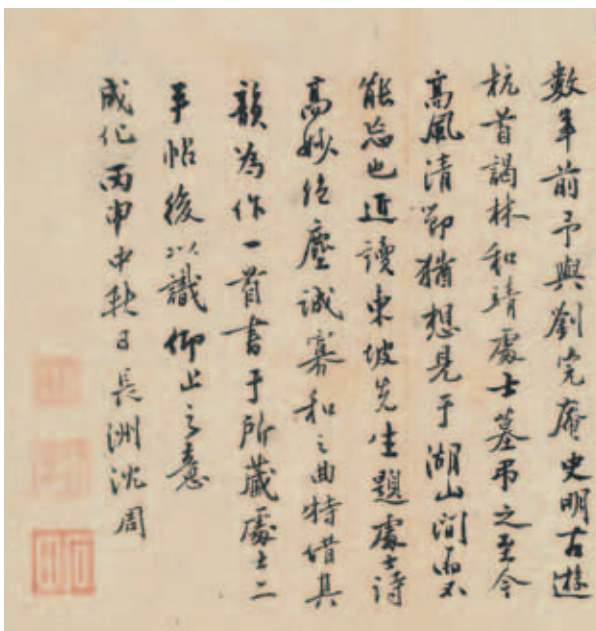 數年前予與劉完庵史明古遊
杭首謁林和靖處士墓弔之至今
高風清節猶想見于湖山間而不
能忘也近讀東坡先生題處士詩
高妙絕塵誠寡和之曲特借其
韻為作一首書于所藏處士二
手帖後以識仰止之意
成化丙申中秋日長洲沈周